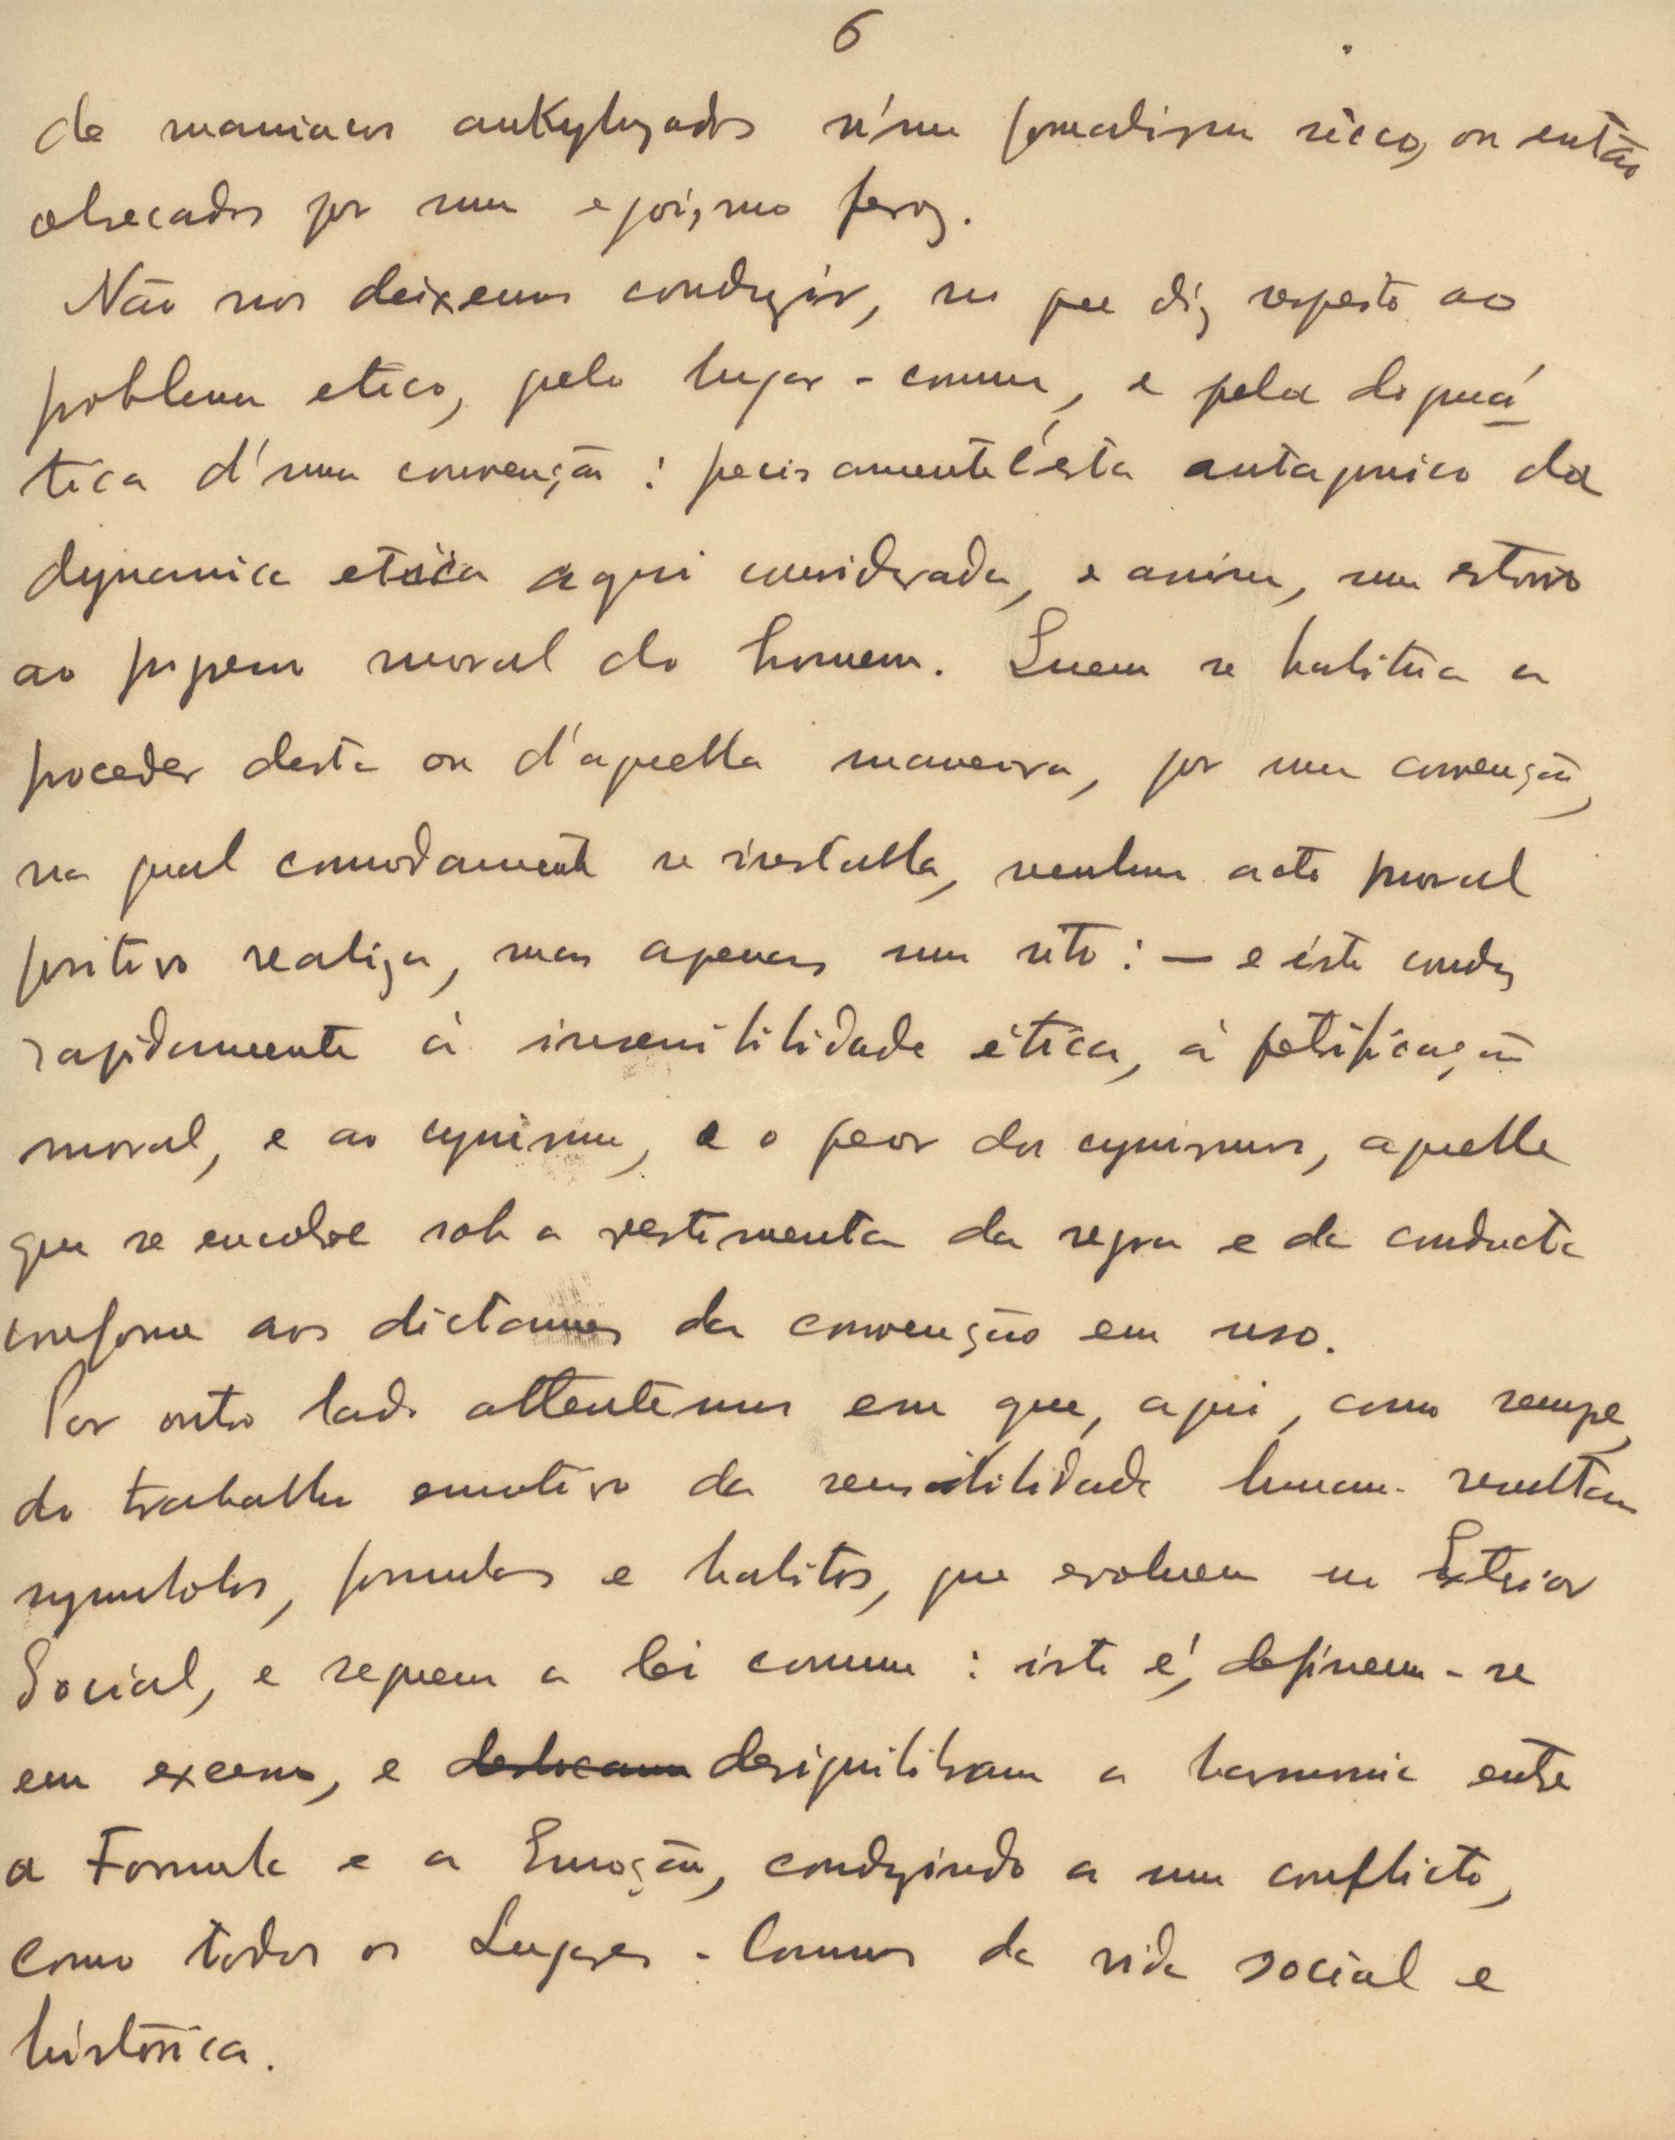 6
de maniacos ankylozados n'um formalismo sêcco, ou então
obsecados por um egoismo feroz.
Não nos deixemos conduzir, no que diz respeito ao
problema etico, pelo lugar-comum, e pela dogmá
tica d'uma convenção: precisamente é esta antagonico da
dynamica etica aqui considerada, e assim, um estorvo
ao progresso moral do homem. Quem se habitúa a
proceder desta ou d'aquella maneira, por uma convenção,
na qual comodamente se installa, nenhum acto moral
positivo realiza, mas apenas um rito: — e éste conduz
rapidamente á insensibilidade ética, á petrificação
moral, e ao cynismo, e o peor dos cynismos, aquelle
que se encobre sob a vestimenta da regra e da conducta
conforme aos dictames da convenção em uso.
Por outro lado attentemos em que, aqui, como sempre,
do trabalho emotivo da sensibilidade humana resultam
symbolos, formulas e habitos, que evoluem no Exterior
Social, e seguem a lei comum: isto é, definem-se
em excesso, e deslocam desiquilibram a harmonia entre
a Formula e a Emoção, conduzindo a um conflicto,
como todos os Lugares-Comuns da vida social e
histórica.